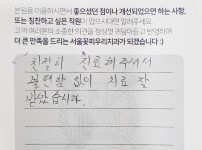 본원을 이용하시면서 좋으셨던 점이나 개선되었으면 하는 사항,
또는 칭찬하고 싶은 직원이 있으시다면 알려주세요.
고객 여러분의 소중한 의견을 정성껏 귀담아듣고 반영하여
더 큰 만족을 드리는 서울꽃피우리치과가 되겠습니다 :)
친절히 진료해주셔서
불편함 없이 치료 잘
받았습니다.